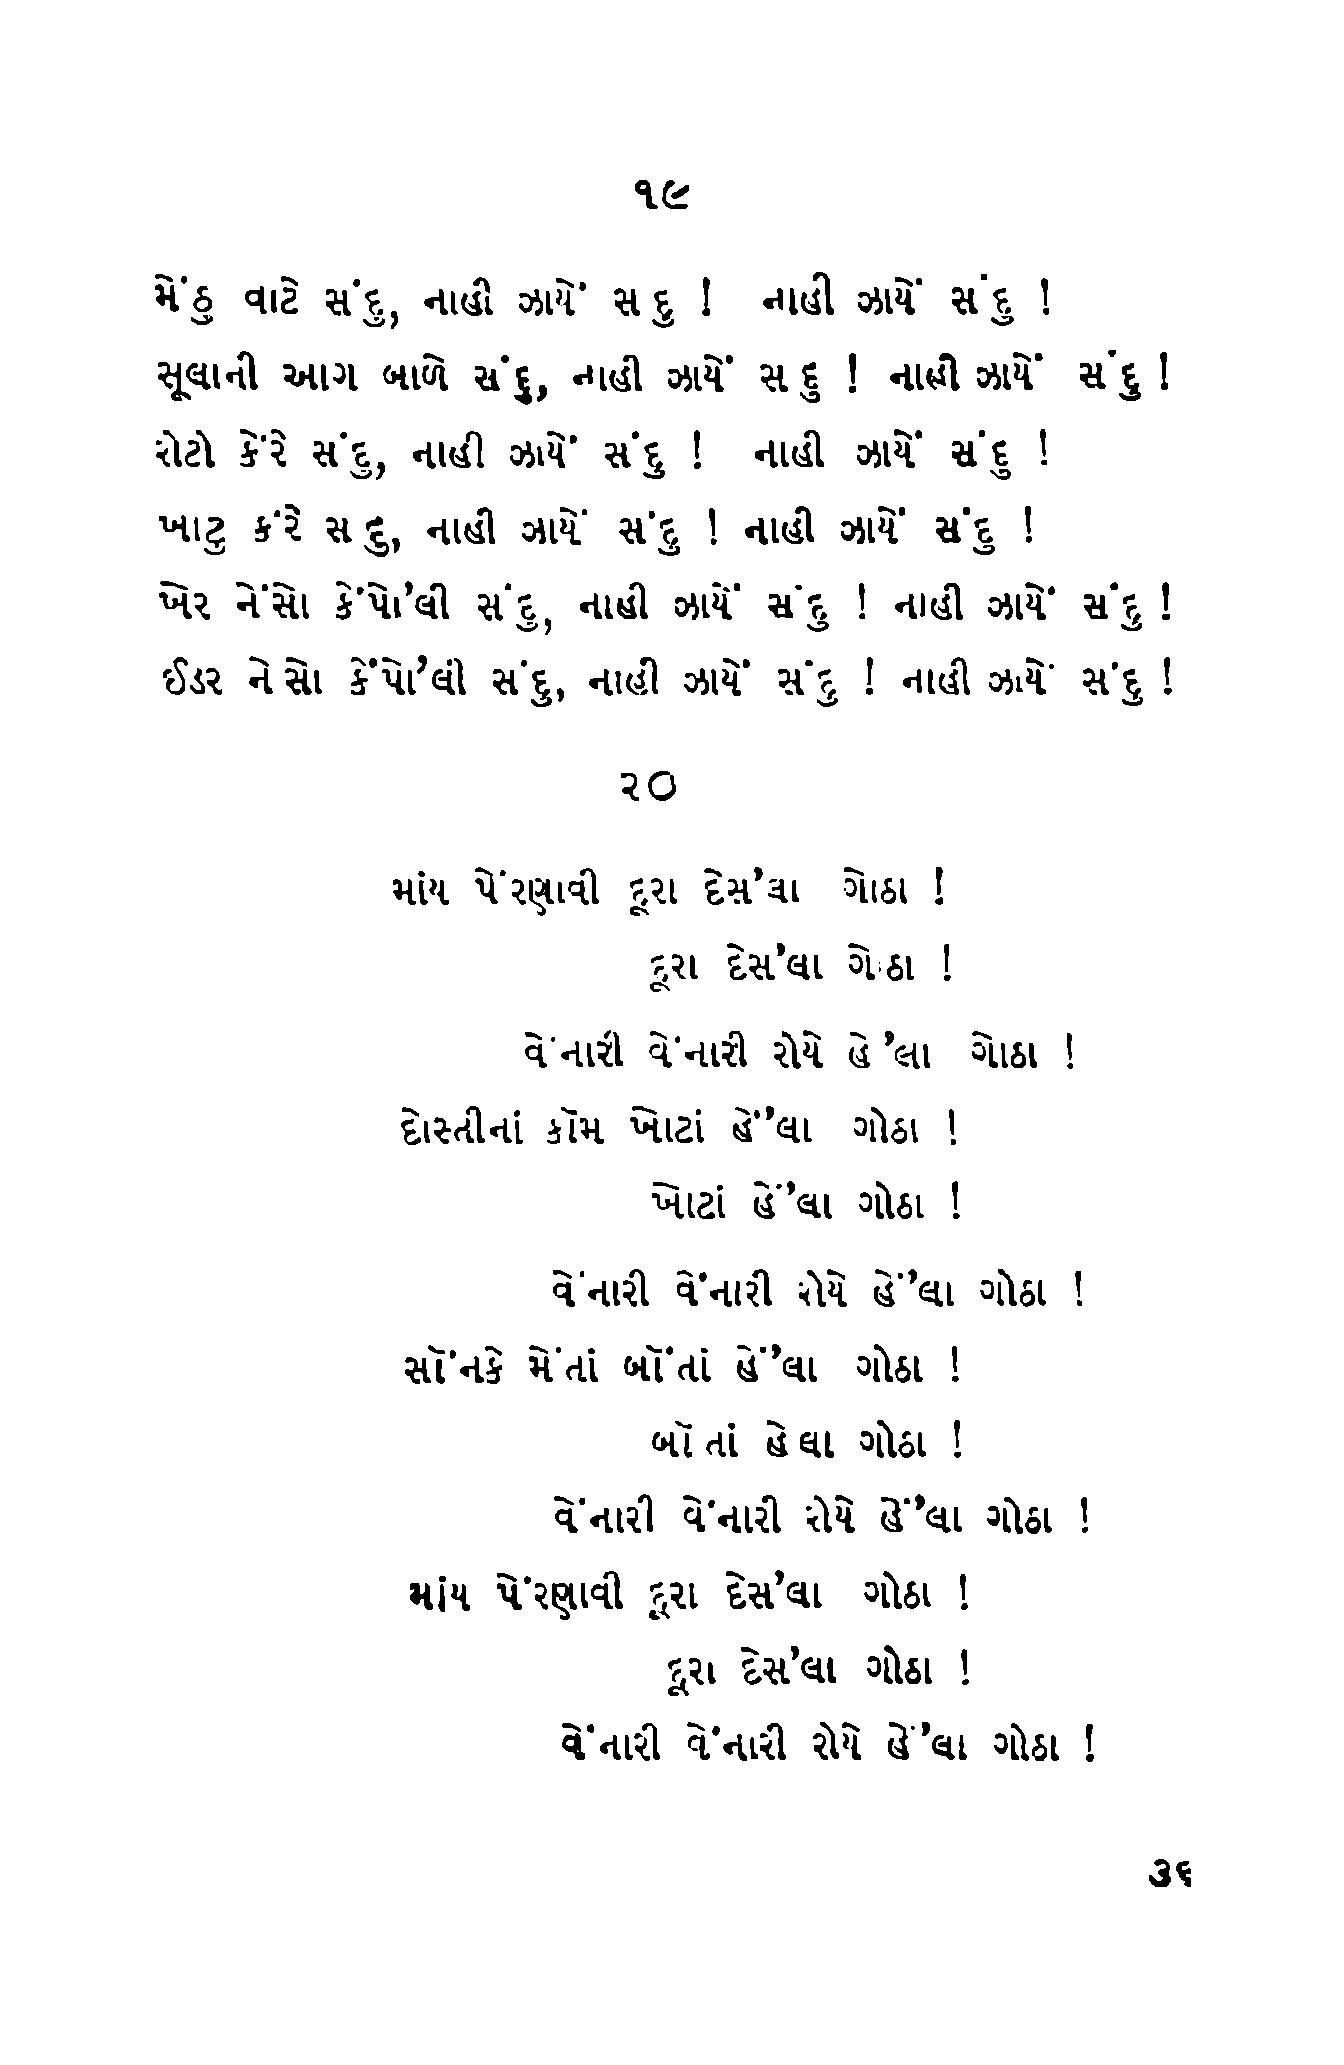 ૧૯
મેંઠુ વાટે સંદુ, નાહી ઝાયેં સદુ ! નાહી ઝાયેં સંદુ !
સૂલાની આગ બાળે સંદુ, નાહી ઝાયેં સદુ ! નાહી ઝાયેં સંદુ !
રોટો કેંરે સંદુ, નાહી ઝાયેં સંદુ ! નાહી ઝાયેં સંદુ !
ખાટુ કંરે સદુ, નાહી ઝાયેં સંદુ ! નાહી ઝાયેં સંદુ !
ખેર નેંસો કેંપો'લી સંદુ, નાહી ઝાયેં સંદુ ! નાહી ઝાયેં સંદુ !
ઈડર નેસો કેંપો'લી સંદુ, નાહી ઝાયેં સંદુ ! નાહી ઝાયેં સંદુ !
૨૦
માંય પેંરણાવી દૂરા દેસ'લા ગોઠા !
દૂરા દેસ'લા ગોઠા !
વેંનારી વેંનારી રોયે હે'લા ગોઠા !
દોસ્તીનાં કૉમ ખોટાં હેં'લા ગોઠા !
ખોટાં હેં'લા ગોઠા !
વેંનારી વેંનારી રોયે હેં'લા ગોઠા !
સૉંનકે મેંતાં બૉંતાં હેં'લા ગોઠા !
બૉતાં હેલા ગોઠા !
વેંનારી વેંનારી રોયે હેં'લા ગોઠા !
માંય પેંરણાવી દૂરા દેસ'લા ગોઠા !
દૂરા દેસ'લા ગોઠા !
વેંનારી વેંનારી રોયે હેં'લા ગોઠા !
૩૬